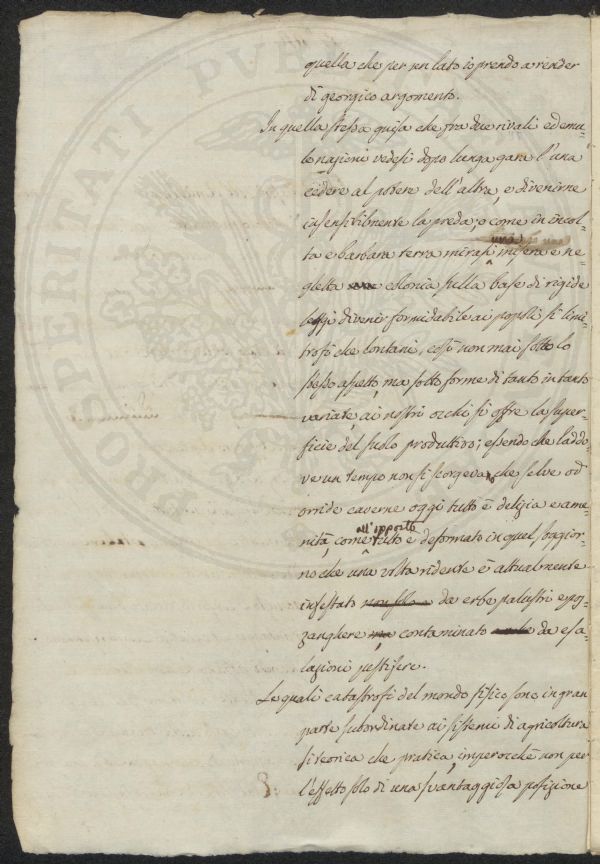 quella che per un lato io prendo a render
di georgico argomento.
In quella stessa guisa che fra due rivali ed emu-
le nazioni vedesi dopo lunga gara l'una
cedere al potere dell'altra, e divenirne
insensibilmente la preda; o come in incol-
una
ta e barbara terra mirasi misera e ne-
gletta colonia sulla base di rigide
leggi divenir formidabile ai popoli sì limi-
trofi che lontani, così non mai sotto lo
stesso aspetto, ma sotto forme di tanto in tanto
variate, ai nostri occhi si offre la super-
ficie del suolo produttivo; essendo che laddo-
ve un tempo non si scorgeva, che selve od
orride caverne oggi tutto è delizia e ame-
all'opposto
nità, come tutto è deformato in quel soggior-
no che una volta ridente è attualmente
infestato da erbe palustri e poz-
zanghere ma contaminato da esa-
lazioni pestifere.
Le quali catastrofi del mondo fisico sono in gran
parte subordinate ai sistemi di agricoltura
sì teorica che pratica, imperocchè non per
l'effetto solo di una svantaggiosa posizione
PROSPERITATI PVBL